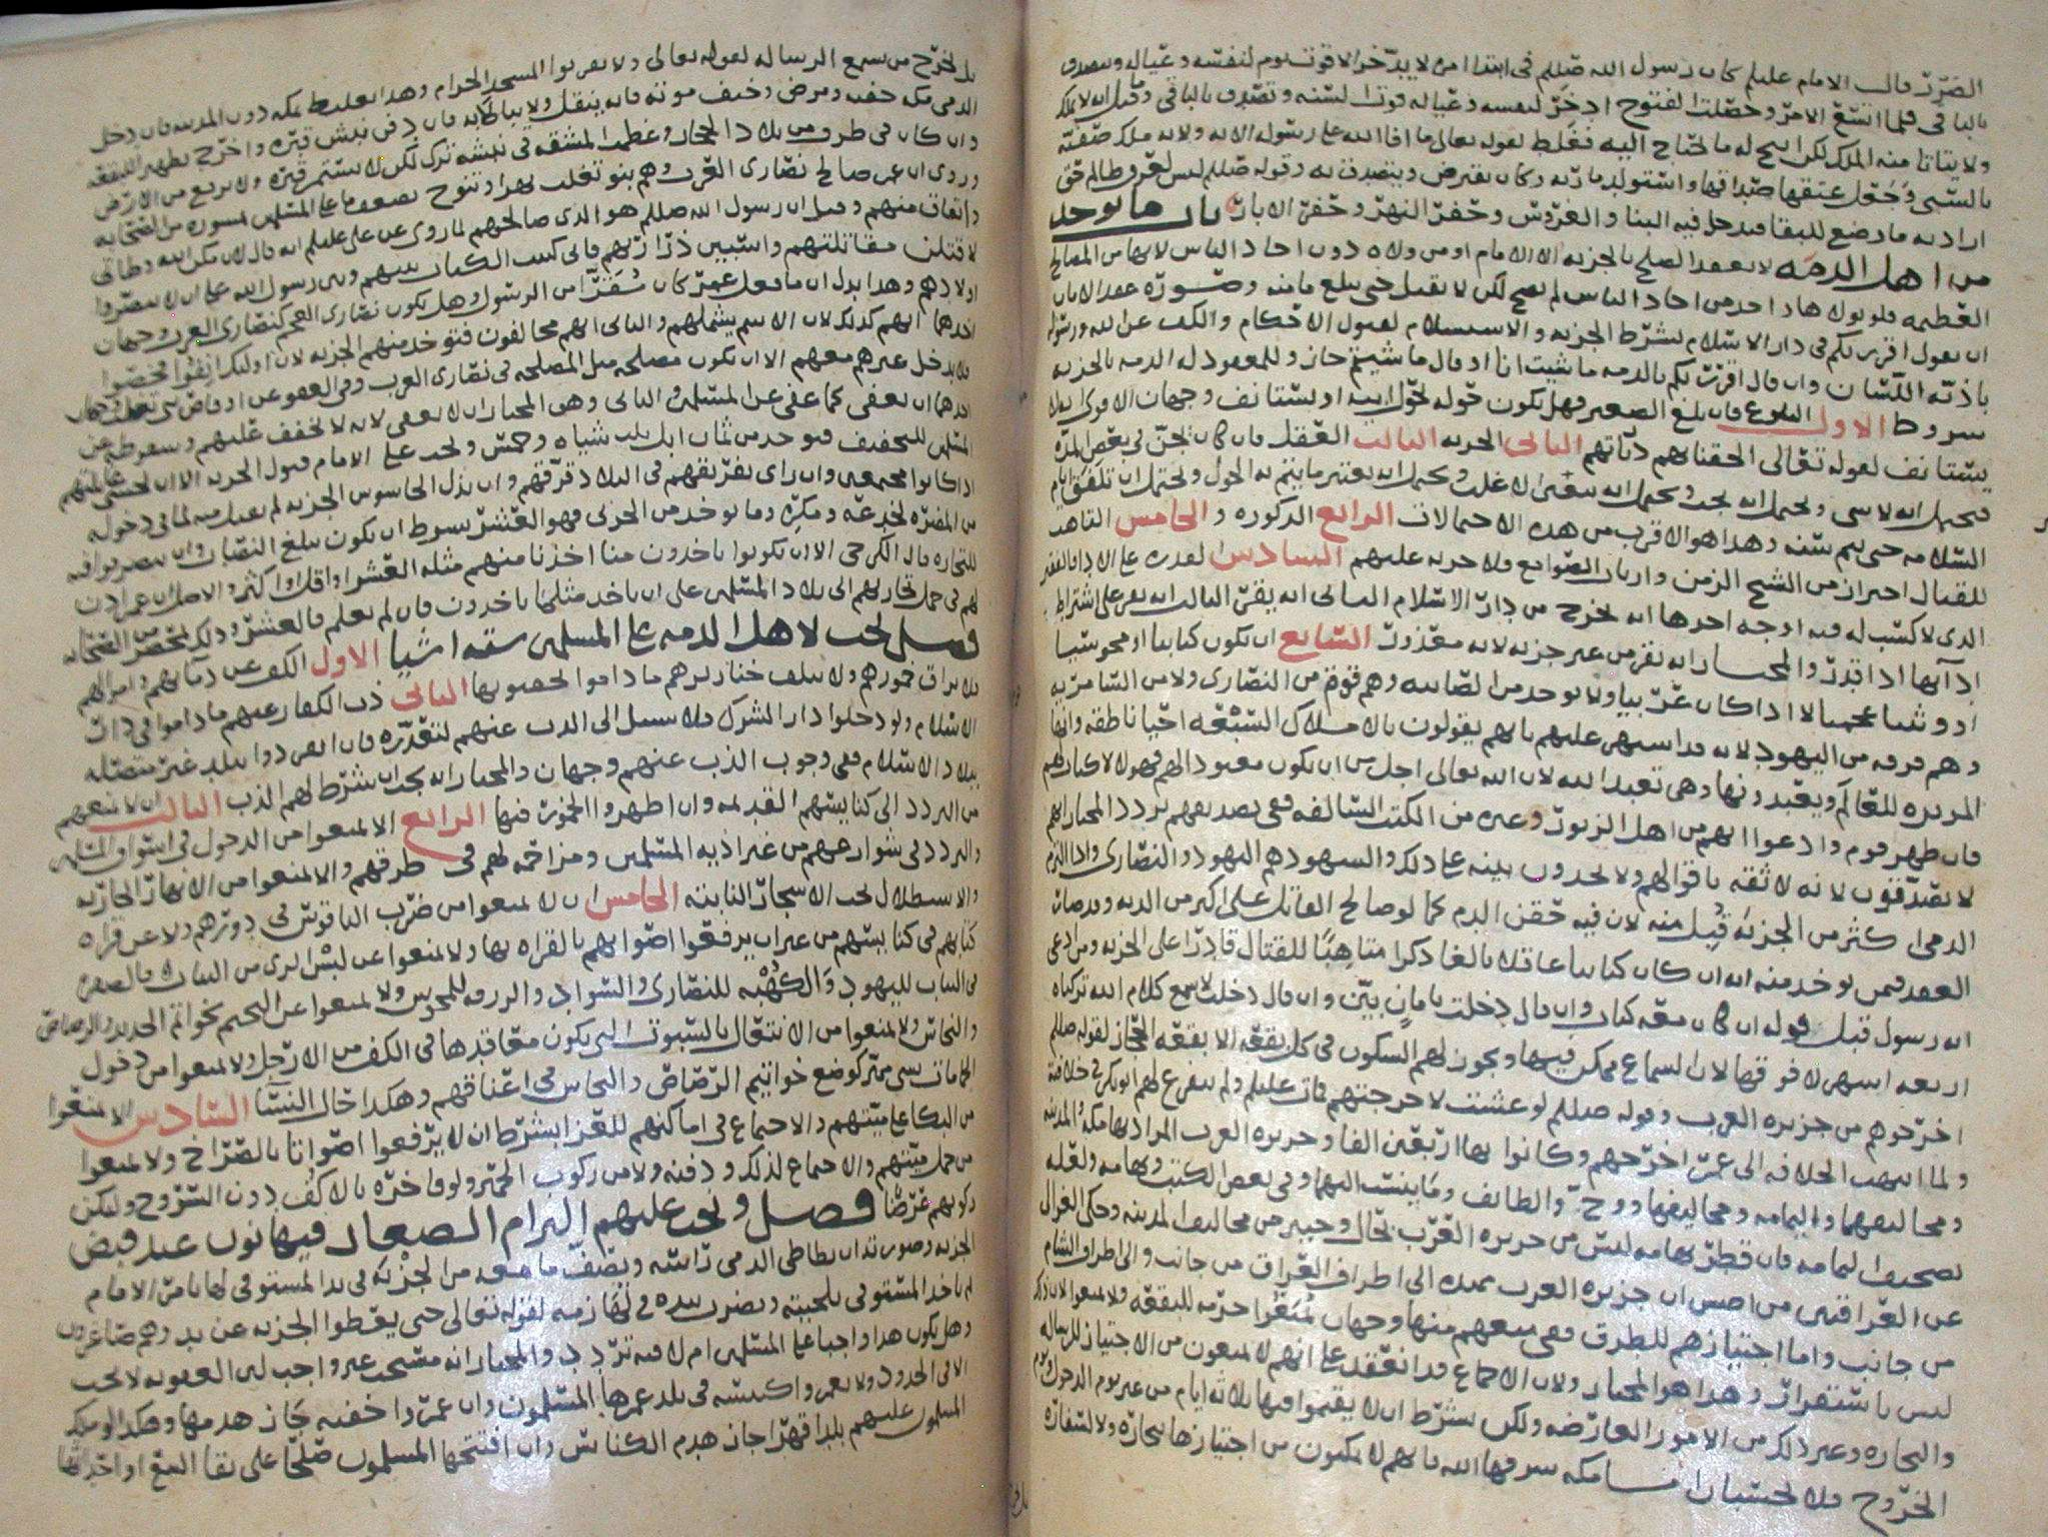 الضرر قال الامام عليلم كان رسول الله صلعم في ابتدا امره لا يدخر الا قوت يوم لنفسه وعياله ويتصدق
بالباقي فلما اتسع الامر وحصلت الفتوح ادخر لنفسه وعياله قوت السنه وتصدق بالباقي وقيل انه لا يملك
ولا يتاتا منه الملك لكن ابيح له ما يحتاج اليه فغلط لقوله تعالى ما افا الله على رسوله الايه ولانه ملك صفيه
بالسبي وجعل عتقها صداقها واستولد ماريه وكان يقترض ويتصدق به وقوله صلعم ليس لعرق ظالم حق
اراد به ما وضع للبقا فيدخل فيه البنا والغروس وحفر النهر وحفر الابار باب ما يوخذ
من اهل الذمه لا يعقد الصلح بالجزيه الا الامام او من ولاه دون احاد الناس لانها من المصالح
العظيمه فلو تولاها احد من احاد الناس لم يصح لكن لا يقتل حتى يبلغ مامنه وصوره عقد الامان
ان يقول اقررتكم في دار الاسلام بشرط الجزيه والاستسلام لقبول الاحكام والكف عن الله ورسوله
باذيه اللسان وان قال اقررتكم بالذمه ما شيت انا او قال ما شيتم جاز وللمعقود له الذمه بالجزيه
شروط الاول البلوغ فان بلغ الصغير فهل يكون حوله حول ابيه او يستانف وجهان الاقوى انه
يستانف لقوله تعالى الحقنا بهم ذرياتهم الثاني الحريه الثالث العقل فان كان يجن في بعض المده
فيحتمل انه لا شي ويحتمل انه يجب ويحتمل انه يعتبر الاغلب ويحتمل انه يعتبر ما يتم به الحول ويحتمل ان تلفق ايام
السلامه حتى يتم سنه وهذا هو الاقرب من هذه الاحتمالات الرابع الذكوره والخامس التاهب
للقتال احتراز من الشيخ الزمن وارباب الصوامع فلا جزيه عليهم السادس القدره على الادا فالفقير
الذي لا كسب له فيه اوجه احدها انه يخرج من دار الاسلام الثاني انه يقر الثالث انه يقر على اشتراط
ادآيها اذا قدر والمختار انه يقر من غير جزيه لانه معذور السابع ان يكون كتابيا او مجوسيا
او وثنيا عجميا لا اذا كان عربيا ولا يوخذ من الصابيه وهم فرقه من النصارى ولا من السامريه
وهم فرقه من اليهود لانه قد اشتهر عليهم بانهم يقولون بالاملاك السبعه احيا ناطقه وانها
المدبره للعالم ويعبدونها وهي تعبد الله لان الله تعالى اجل من ان يكون معبودا لهم فهولا لا كتاب لهم
فان ظهر قوم وادعوا انهم من اهل الزبور وغيره من الكتب السالفه ففي تصديقهم تردد المختار انهم
لا يصدقون لانه لا ثقه باقوالهم ولا يجدون بينه على ذلك والمشهود هم اليهود والنصارى واذا التزم
الذمي اكثر من الجزيه قبل منه لان فيه حقن الدم كما لو صالح القاتل على اكثر من الديه
العقد فمن يوخذ منه انه ان كان كتابيا عاقلا بالغا ذكرا متاهبا للقتال قادرا على الجزيه ومن ادعى
انه رسول قبل قوله ان كان معه كتاب وان قال دخلت بامان بين وان قال دخلت لاسمع كلام الله تركناه
اربعه اشهر لا فوقها لان السماع ممكن فيها ويجوز لهم السكون في كل بقعه الا بقعه الحجاز لقوله صلعم
اخرجوهم من جزيره العرب وقوله صلعم لو عشت لاخرجنهم فمات عليلم ولم يتفرغ لهم ابو بكر في خلافته
ولما انتهت الخلافه الى عمر اخرجهم وكانوا بها اربعين الفا وجزيره العرب المراد بها مكه والمدينه
ومخاليفهما واليمامه ومخاليفها ووج والطائف وما ينسب اليهما وفي بعض الكتب وتهامه ولعله
تصحيف اليمامه فان قطر تهامه ليس من جزيره العرب بحال وخيبر من مخاليف المدينه وحكى الغزالي
عن العراقيين من اصحابه ان جزيره العرب ممتده الى اطراف العراق من جانب والى اطراف الشام
من جانب واما اجتيازهم للطرق ففي منعهم منها وجهان يمنعوا حرمه للبقعه ولا يمنعوا لان ذلك
ليس باستقرار وهذا هو المختار ولان الاجماع قد انعقد على انهم لا يمنعون من الاجتياز للرساله
والتجاره وغير ذلك من الامور العارضه ولكن بشرط ان لا يقيموا فيها ثلاثه ايام من غير يوم الدخول ويوم
الخروج فلا يحتسبان مكه شرفها الله فانهم لا يمكنون من اجتيازها بتجاره ولا لسفاره
بل يخرج من يسمع الرساله لقوله تعالى ولا يقربوا المسجد الحرام وهذا تغليظ بمكه دون المدينه فان دخل
الذمي مكه خفيه ومرض وخيف موته فانه ينقل ولا يبالى به فان دفن نبش قبره واخرج تطهيرا للبقعه
وان كان في طرف من بلاد الحجاز وعظمت المشقه في نبشه ترك لكن لا يستمر قبره ولا يرفع من الارض
وروي ان عمر صالح نصارى العرب وهم بنو تغلب بهرا وتنوخ بضعف ما على المسلمين بمشوره من الصحابه
واتفاق منهم وقيل ان رسول الله صلعم هو الذي صالحهم لما روي عن علي عليلم انه قال لان مكن الله وطاتي
لاقتلن مقاتلتهم واسبين ذراريهم فاني كتبت الكتاب بينهم وبين رسول الله على ان لا ينصروا
اولادهم وهذا يدل ان ما فعله عمر كان مقررا من الرسول وهل يكون نصارى العجم كنصارى العرب وجهان
احدهما انهم كذلك لان الاسم يشملهم والثاني انهم مخالفون فتوخذ منهم الجزيه لان اوليك انفوا فخصوا
فلا يدخل غيرهم معهم الا ان يكون مصلحه مثل المصلحه في نصارى العرب وفي العفو عن اوقاص وجهان
احدهما ان يعفى كما عفي عن المسلمين والثاني وهو المختار ان لا يعفى لانه لا تخفف عليهم
اذا كانوا مجتمعين وان راى تفريقهم في البلاد فرقهم وان بذل الجاسوس الجزيه لم تقبل منه لما في دخوله
من المضره لخدعه ومكره وما يوخذ من الحربي فهو العشر بشرط ان يكون يبلغ النصاب
للتجاره قال الكرخي الا ان يكونوا ياخذون منا اخذنا منهم مثله العشر او اقل او اكثر والاصل ان عمر اذن
لهم في حمل تجارتهم الى بلاد المسلمين على ان ياخذ مثل ما ياخذون فان لم يعلم فالعشر وذلك بمحضر من الصحابه
فصل يجب لاهل الذمه على المسلمين سته اشيا الاول الكف عن دمايهم واموالهم
فلا يراق خمورهم ولا يتلف خنازيرهم ما داموا الثاني ذب الكفار عنهم ما داموا في دار
الاسلام ولو دخلوا دار الشرك فلا سبيل الى الذب عنهم لتعذره فان انفردوا ببلد غير متصله
ببلاد الاسلام ففي وجوب الذب عنهم وجهان والمختار انه يجب ان شرط لهم الذب الثالث ان لا نمنعهم
من التردد الى كنايسهم القديمه وان اظهروا الخمور فيها الرابع الا يمنعوا من الدخول في اسواق المسلمين
والتردد في شوارعهم من غير اذيه المسلمين ومزاحمه لهم في طرقهم والا يمنعوا من الانهار الجاريه
والاستظلال تحت الاشجار النابته الخامس ان لا يمنعوا من ضرب الناقوس في دورهم ولا عن قراه
كتابهم في كنايسهم من غير ان يرفعوا اصواتهم بالقراه بها ولا يمنعوا عن لبس الزي من الثياب فالصفره
في الثياب لليهود والكهبه للنصارى والسواد والزرقه للمجوس ولا يمنعوا عن التختم بخواتم الحديد والرصاص
والنحاس ولا يمنعوا من الانتعال بالسبوت التي يكون معاقدها في الكف من الارجل ولا يمنعوا من دخول
الحمامات بشي يميز كوضع خواتيم الرصاص والنحاس في اعناقهم وهكذا حال النسآ السادس لا يمنعوا
من البكا على ميتهم والاجتماع في اماكنهم للعزا بشرط ان لا يرفعوا اصواتا بالصراخ ولا يمنعوا
من حمل ميتهم والاجتماع لذلك ودفنه ولا من ركوب الحمير ولو فاخره بالاكف دون السروج وليكن
ركوبهم عرضا فصل ويجب عليهم التزام الصغار فيهانون عند قبض
الجزيه وصورته ان يطاطي الذمي راسه ويصف ما معه من الجزيه في يد المستوفي لها بامر الامام
ثم ياخذ المستوفي بلحيته ويضرب بيده في لهازمه لقوله تعالى حتى يعطوا الجزيه عن يد وهم صاغرون
وهل يكون هذا واجبا على المسلمين ام لا فيه تردد والمختار انه مستحب غير واجب لان العقوبه لا تجب
الا في الحدود ولا يعمروا كنيسه في بلد عمرها المسلمون وان عمروا خفيه جاز هدمها وهكذا لو ملك
المسلمون عليهم بلدا قهرا جاز هدم الكنائس وان افتتحها المسلمون صلحا على بقا البيع او اخذ